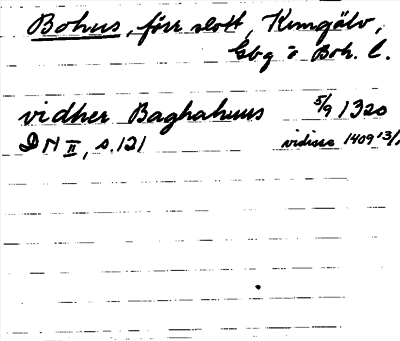 Bohus, förr slott, Kungälv,
Gbg o Boh. l.
vidher Baghahuus 5/9 1320
DN II, s. 121 vidisse 1409 13/